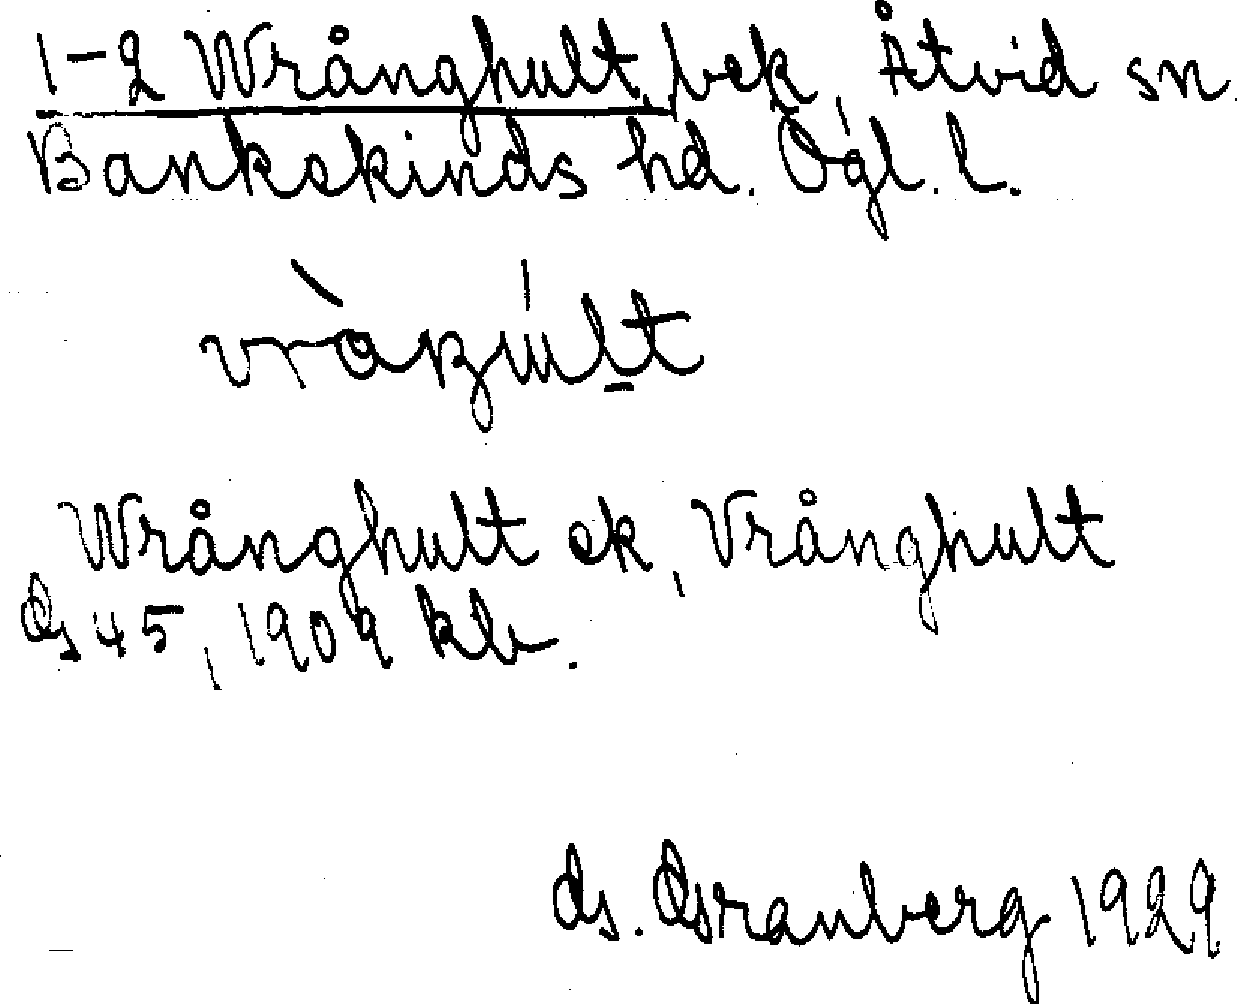 1-2 Wrånghult, bek, Åtvid sn.
Bankekinds hd. Ögl. l.
Wrånghult ek, Vrånghult
Gs 45, 1909 kb.
Granberg 1929